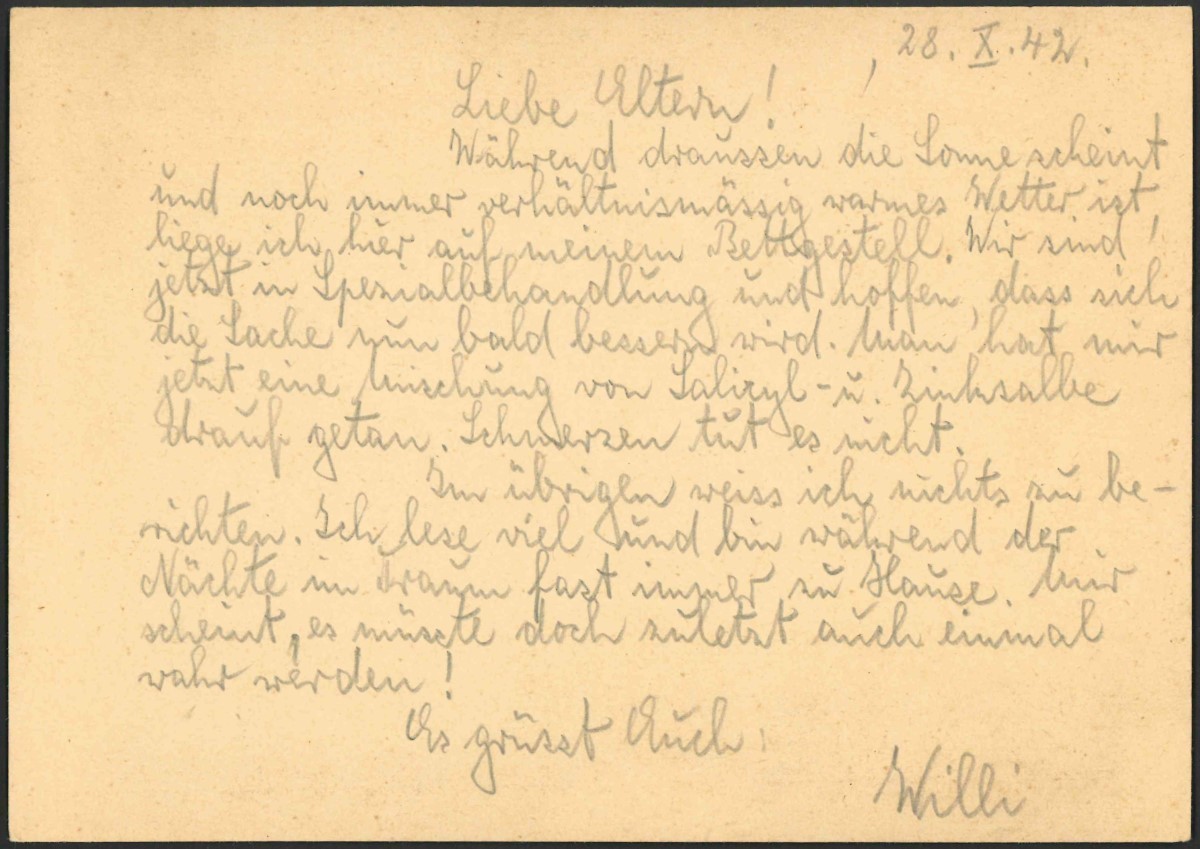 28. X. 42.
Liebe Eltern!
Während draussen die Sonne scheint
und noch immer verhältnismässig warmes Wetter ist,
liege ich hier auf meinem Bettgestell. Wir sind
jetzt in Spezialbehandlung und hoffen, dass sich
die Sache nun bald bessern wird. Man hat mir
jetzt eine Mischung von Salizyl- u. Zinksalbe
drauf getan. Schmerzen tut es nicht.
Im übrigen weiss ich nichts zu be-
richten. Ich lese viel und bin während der
Nächte im Traum fast immer zu Hause. Mir
scheint, es müsste doch zuletzt auch einmal
wahr werden!
Es grüsst Euch
Willi